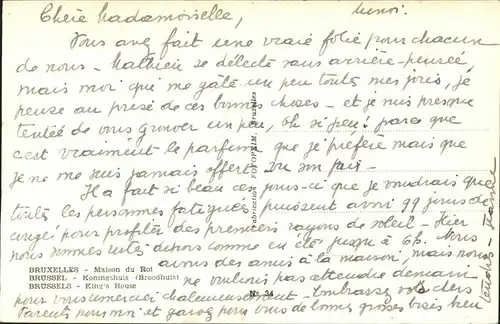 Chère Mademoiselle,
Vous avez fait une vraie folie pour chacun
de nous - Mathieu se délecte sans arrière-pensée,
mais moi que me gâte un peu toutes mes joies, je
pense au prix de ces bonnes choses - et je suis presque
tentée de vous gronder un peu, oh si peu! parce que
c'est vraiment le parfum que je préfère mais que
je ne me suis jamais offert vu son prix -
Il a fait si beau ces jours-ci que je voudrais que
toutes les personnes fatiguées puissent avoir 99 jours de
congé pour profiter des premiers rayons de soleil - Hier
nous sommes restés dehors comme en été jusqu'à 6h. Nous
avions des amis à la maison, mais nous
ne voulions pas attendre demain
pour vous remercier chaleureusement - Embrassez vos chers
Parents pour moi et gardez pour vous de bonnes grosses bises
BRUXELLES - Maison du Roi
BRUSSEL - Koningshuis (Broodhuis)
BRUSSELS - King's House
N° 34